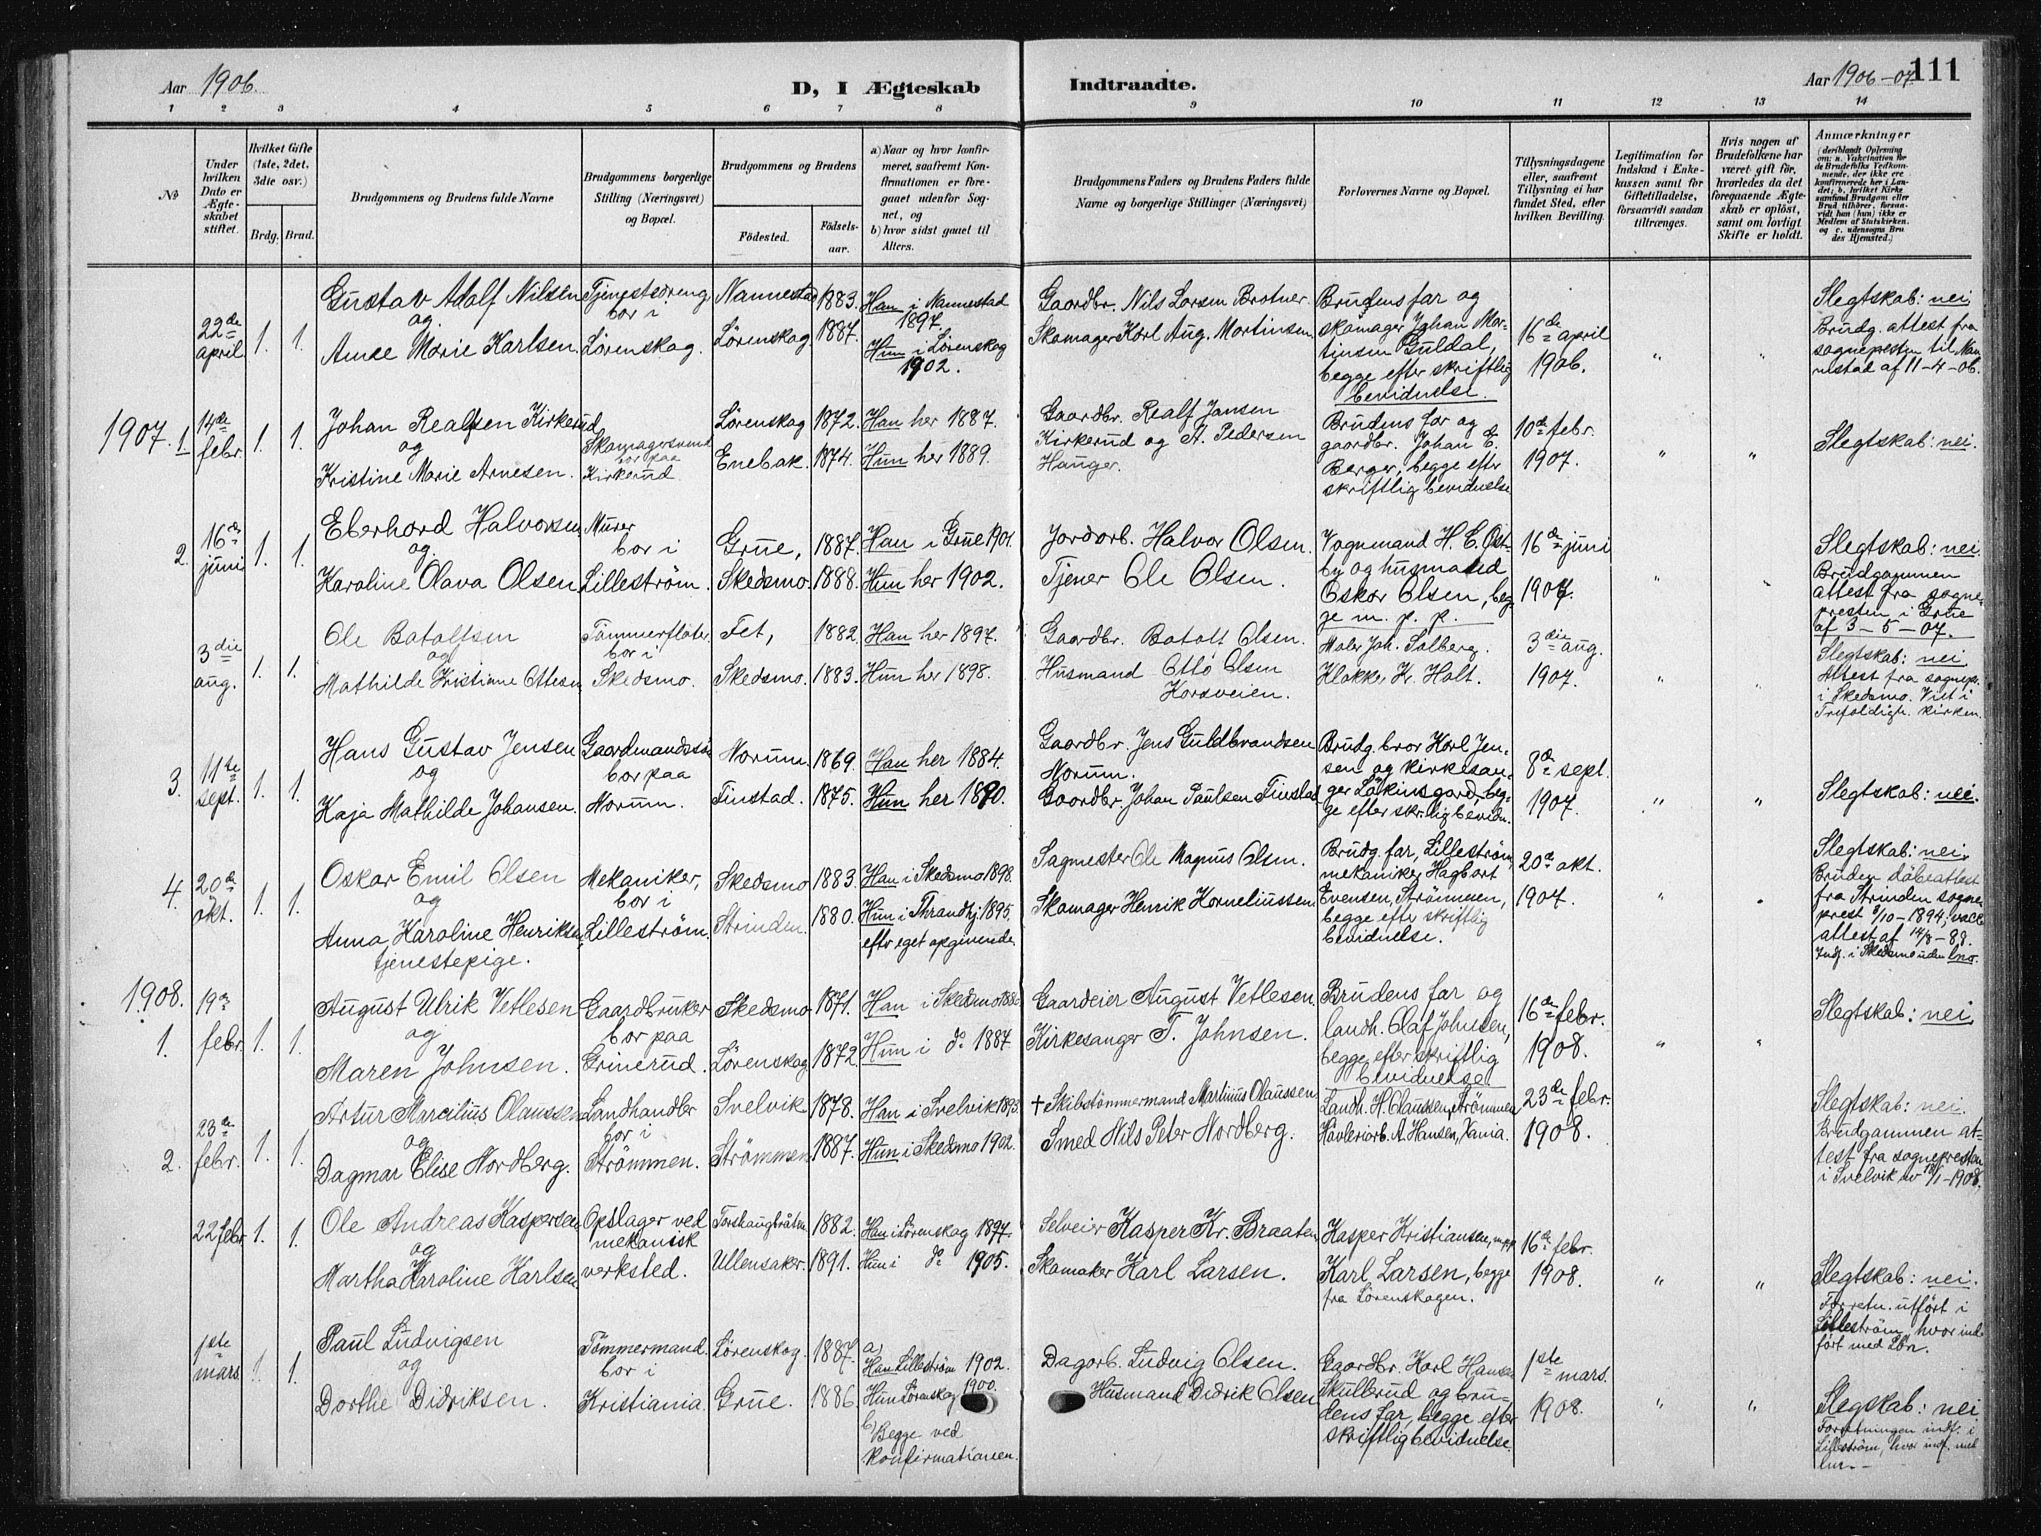 Aar 1906.
D, I Ægteskab
Indtraadte.
Aar 1906-07
111
1 2 3 4 5 6 7 8 9 10 11 12 13 14
No
Under hvilken Dato er Ægteskabet stiftet.
Hvilket Gifte (1ste, 2det, 3die osv.)
Brdg. Brud.
Brudgommens og Brudens fulde Navne
Brudgommens borgerlige Stilling (Næringsvei) og Bopæl.
Brudgommens og Brudens
Fødested.
Fødselsaar.
a) Naar og hvor konfirmeret, saafremt Konfirmationen er foregaaet udenfor Sognet, og
b) hvor sidst gaaet til Alters.
Brudgommens Faders og Brudens Faders fulde Navne og borgerlige Stillinger (Næringsvei)
Forlovernes Navne og Bopæl.
Tillysningsdagene eller, saafremt Tillysning ei har fundet Sted, efter hvilken Bevilling.
Legitimation for Indskud i Enkekassen samt for Giftetilladelse, forsaavidt saadan tiltrænges.
Hvis nogen af Brudefolkene har været gift før, hvorledes da det foregaaende Ægteskab er opløst, samt om lovligt Skifte er holdt.
Anmærkninger
(deriblandt Oplysning om: a. Vakcination for de Brudefolks Vedkommende, der ikke ere konfirmerede her i Landet; b. hvilket Kirkesamfund Brudgom eller Brud tilhører, forsaavidt han (hun) ikke er Medlem af Statskirken. og c. udensogns Brudes Hjemsted.)
22de april 1. 1.
Gustav Adolf Nilsen
og
Anne Marie Karlsen.
Tjenestedreng
bor i
Lörenskog.
Nannestad 1883.
Lörenskog 1887.
Han i Nannestad
1897.
Hun i Lörenskog
1902.
Gaardbr. Nils Larsen Brotner
Skomager Karl Aug. Martinsen
Brudens far og
skomager Johan Mar-
tinsen Guldal,
begge efter skriftlig
bevidnelse.
16de april
1906.
"
"
Slegtskab: nei
Brudg. attest fra
sognepresten til Nan-
nestad af 11-4-06.
1907. 1 14de febr. 1. 1.
Johan Realfsen Kirkerud
og
Kristine Marie Arnesen.
Skomagersvend
bor paa
Kirkerud
Lörenskog 1872.
Enebak. 1874.
Han her 1887.
Hun her 1889.
Gaardbr. Realf Jansen
Kirkerud og A. Pedersen
Hauger.
Brudens far og
gaardbr. Johan E.
Berger, begge efter
skriftlig bevidnelse
10de febr.
1907.
"
"
Slegtskab: nei.
2. 16de juni 1. 1.
Eberhard Halvorsen
og
Karoline Olava Olsen
Murer
bor i
Lilleström.
Grue, 1887.
Skedsmo. 1888.
Han i Grue 1901.
Hun her 1902.
Jordarb. Halvor Olsen.
Tjener Ole Olsen.
Vognmand H. E. Øst-
by og husmand
Oskar Olsen, beg-
ge m. p. p.
16de juni
1907.
"
Slegtskab: nei
Brudgommen
attest fra sogne-
presten i Grue
af 3-5-07.
3die aug. 1. 1.
Ole Batolfsen
og
Mathilde Kristiane Ottesen
Tömmerflöter
bor i
Skedsmo.
Fet, 1882.
Skedsmo. 1883.
Han her 1897.
Hun her 1898.
Gaardbr. Batolf Olsen.
Husmand Otto Olsen
Korsveien.
Maler Joh. Solberg.
Klokker K. Holt.
3die aug.
1907.
"
Slegtskab: nei
Attest fra sognepr.
i Skedsmo. Viet i
Trefoldigh. kirken.
3. 11te sept. 1. 1.
Hans Gustav Jensen
og
Kaja Mathilde Johansen.
Gaardmandssön
bor paa
Norum.
Norum. 1869.
Finstad. 1875.
Han her 1884.
Hun her 1890.
Gaardbr. Jens Guldbrandsen
Norum.
Gaardbr. Johan Paulsen Finstad
Brudg. bror Karl Jen-
sen og kirkesan-
ger Lökinsgard, beg-
ge efter skr.lig bevidn.
8de sept.
1907.
"
"
Slegtskab: nei.
4. 20de okt. 1. 1.
Oskar Emil Olsen
og
Anna Karoline Henriksen,
tjenestepige.
Mekaniker,
bor i
Lilleström.
Skedsmo 1883.
Strinden. 1880.
Han i Skedsmo 1898.
Hun i Thrandhj. 1895.
eftr eget opgivende
Sagmester Ole Magnus Olsen.
Skomager Henrik Korneliussen
Brudg. far, Lilleström,
mekaniker Hagbart
Evensen, Strömmen,
begge efter skriftlig
bevidnelse.
20de okt.
1907.
"
Slegtskab: nei.
Bruden döbeattest
fra Strinden sogne-
prest 9/10-1894, vacc.
attest af 14/8-88.
Indf. i Skedsmo uden lno.
1908. 1. 19de febr. 1. 1.
August Ulrik Vetlesen
og
Maren Johnsen.
Gaardbruker
bor paa
Grinerud.
Skedsmo 1871.
Lörenskog 1872.
Han i Skedsmo
Hun i do 1887.
Gaardeier August Vetlesen.
Kirkesanger T. Johnsen.
Brudens far og
landh. Olaf Johnsen,
begge efter skriftlig
bevidnelse
16de febr.
1908.
"
"
Slegtskab: nei
2. 23de febr. 1. 1.
Artur Marcilius Olaussen
og
Dagmar Elise Nordberg.
Landhandler
bor i
Strömmen.
Svelvik 1878.
Strömmen 1887.
Han i Svelvik 1893.
Hun i Skedsmo 1902.
+ Skibstömmermand Martinus Olaussen
Smed Nils Peter Nordberg.
Landh. H. Olaussen, Strömmen
Hövleriarb. A. Hansen, Xania.
23de febr.
1908.
Slegtskab: nei.
Brudgommen at-
test fra sognepresten
i Svelvik av /1-1908.
22 febr. 1. 1.
Ole Andreas Kaspersen
og
Martha Karoline Karlsen
Opslager ved
mekanisk
verksted.
Torshaugbråten 1882.
Ullensaker. 1891.
Han i Lörenskog 1897.
Hun i do 1905.
Selveier Kasper Kr. Braaten
Skomaker Karl Larsen.
Kasper Kristiansen, m.p.p
Karl Larsen, begge
fra Lörenskogen.
16de febr.
1908.
"
"
Slegtskab: nei.
Forretn. utfört i
Lilleström, hvor ind-
fört med Lön.
1ste mars 1. 1.
Paul Ludvigsen
og
Dorthe Didriksen.
Tömmermand.
bor i
Kristiania.
Lörenskog. 1887.
Grue. 1886.
a)
Han Lilleström 1902.
Hun Lörenskog 1900.
b)
Begge ved
konfirmationen.
Dagarb. Ludvig Olsen.
Husmand Didrik Olsen
Gaardbr. Karl Hansen
Skullerud og bru-
dens far, begge efter
skriftlig bevidnelse.
1ste mars.
1908.
"
"
Slegskab: nei
Forretningen indf. i
Lilleström, hvor indf. med